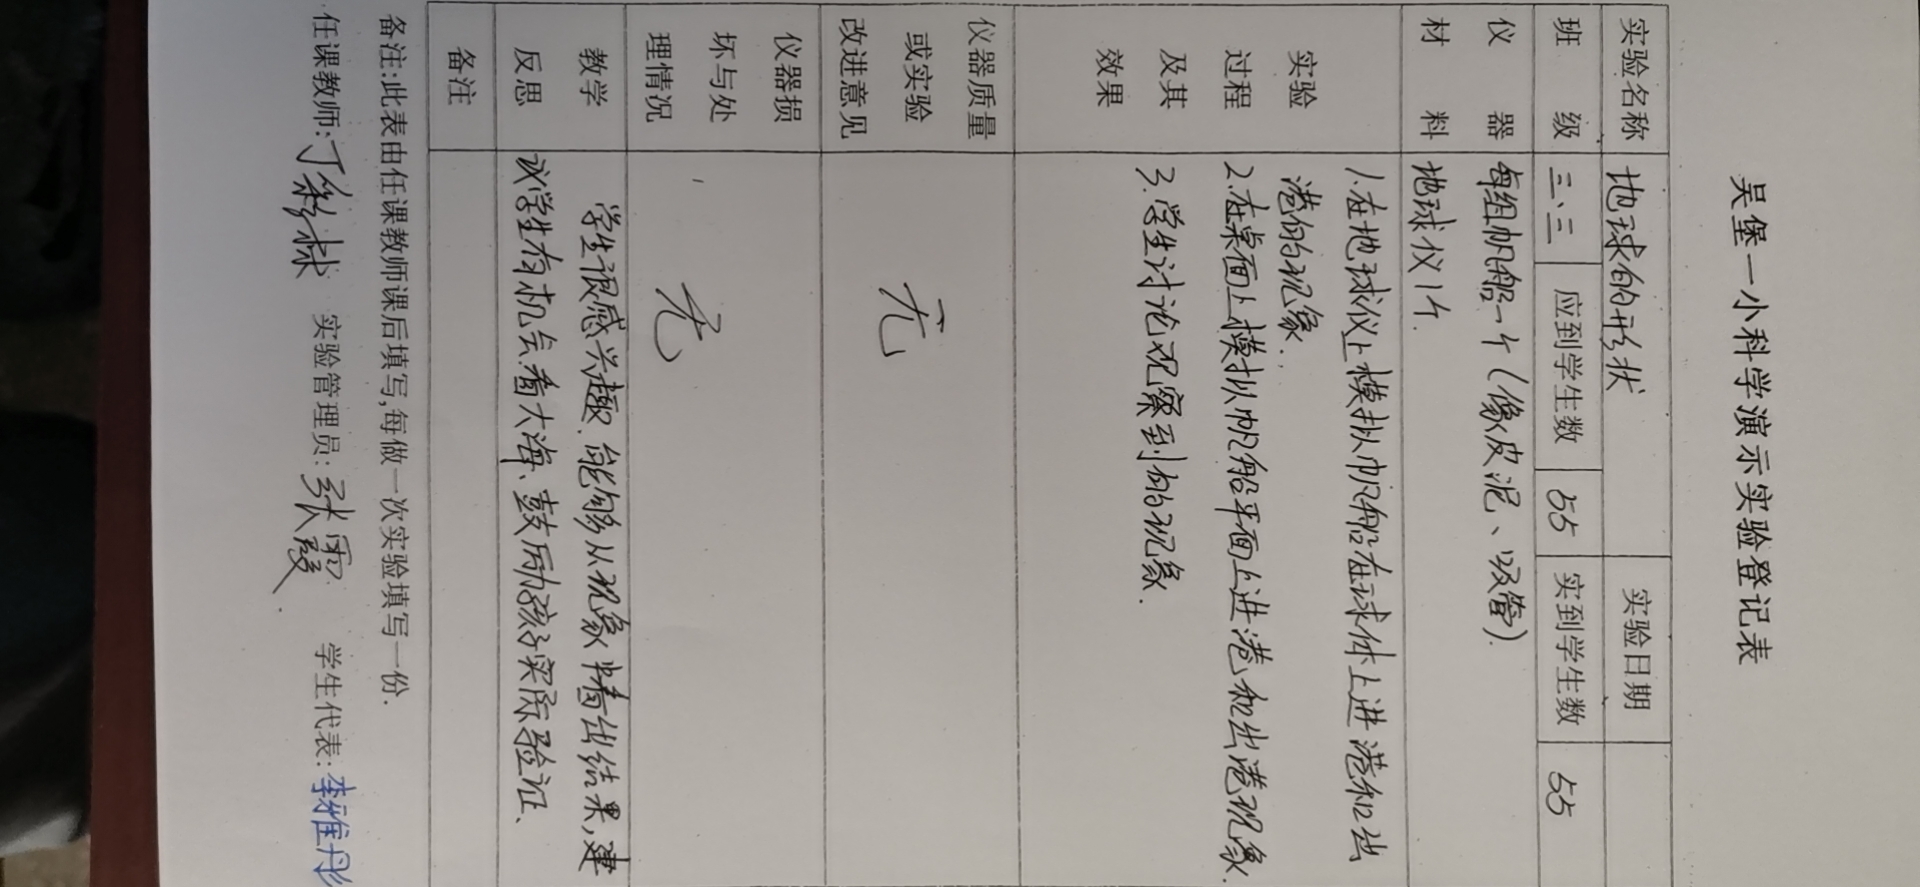 吴堡一小科学演示实验登记表
实验名称 地球的形状 实验日期
班级 三.三 应到学生数 55 实到学生数 55
仪器 每组帆船一个(像皮泥、吸管).
材料 地球仪1个.
实验过程及其效果
1.在地球仪上模拟帆船在球体上进港和出
港的的现象.
2.在桌面上模拟帆船平面上进港和出港现象.
3.学生讨论观察到的现象.
仪器质量或实验改进意见 无
仪器损坏与处理情况 无
教学 学生很感兴趣.能够从现象中猜出结果,建
反思 议学生有机会看大海、鼓励孩子实际验证、
备注
备注:此表由任课教师课后填写,每做一次实验填写一份.
任课教师: 丁 实验管理员: 张霞. 学生代表: 李雅丹